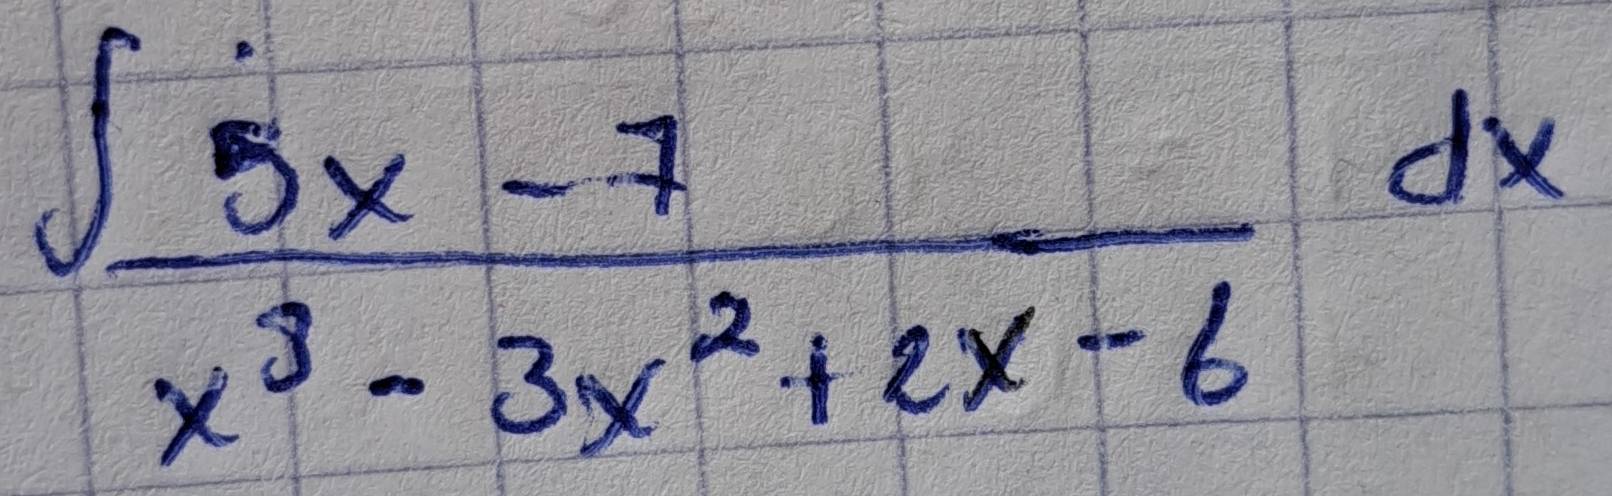 ∫ (5x - 7) / (x³ - 3x² + 2x - 6) dx